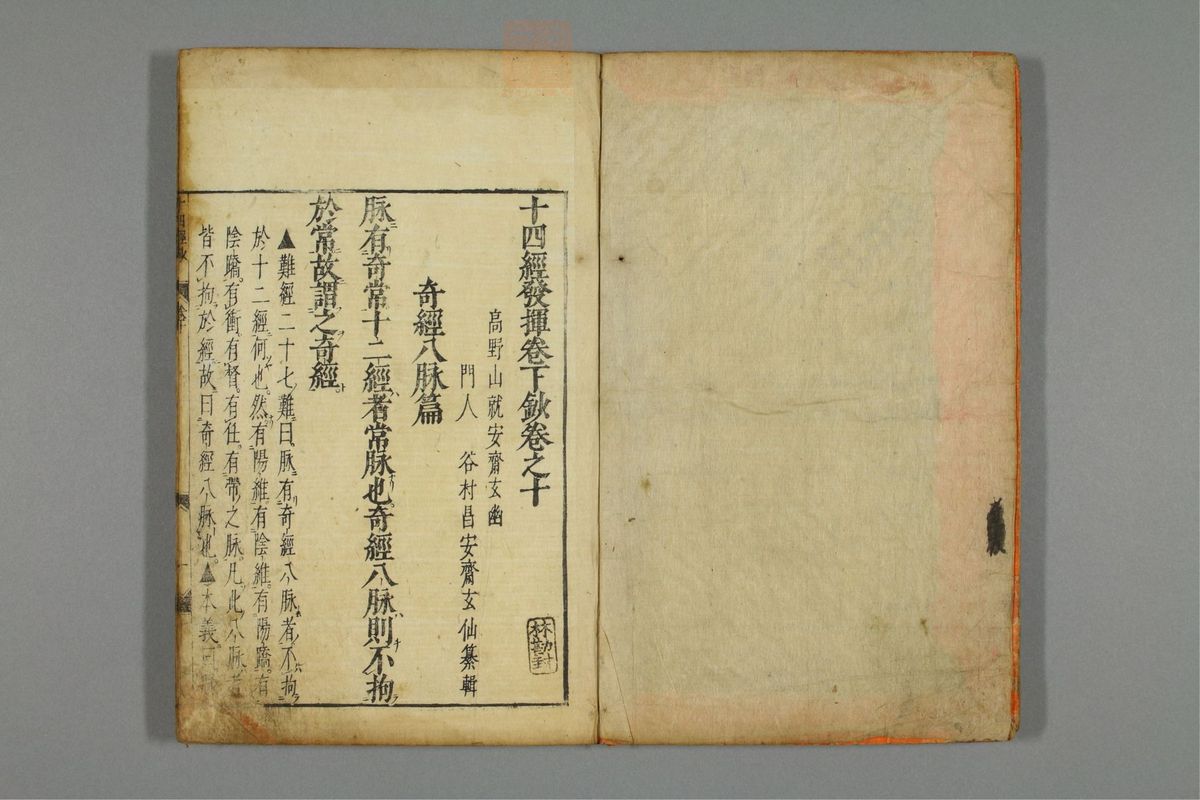 十四經發揮卷下鈔卷之十
高野山就安齋玄幽
門人　谷村昌安齋玄仙纂輯
奇經八脉篇
脉有奇常十二經者常脉也奇經八脉則不拘
於常故謂之奇經
▲難經二十七難曰脉有奇經八脉者不拘
於十二經何也然有陽維有陰維有陽蹻有
陰蹻有衝有督有任有帶之脉凡此八脉者
皆不拘於經故曰奇經八脉也▲本義曰脉